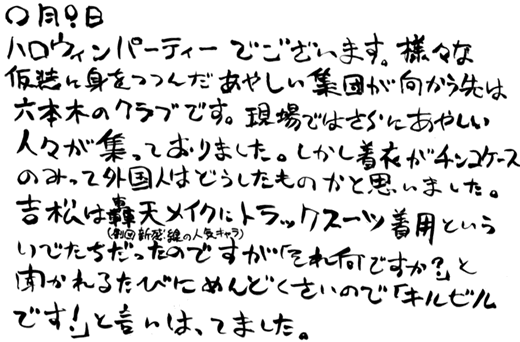 〇月〇日
ハロウィンパーティーでございます。様々な
仮装に身をつつんだあやしい集団が向かう先は
六本木のクラブです。現場ではさらにあやしい
人々が集っておりました。しかし着衣がチンコケース
のみって外国人はどうしたものかと思いました。
吉松は轟天メイクにトラックスーツ着用という
(劇団新感線の人気キャラ)
いでたちだったのですが「それ何ですか?」と
聞かれるたびにめんどくさいので「キルビル
です!」と言いはってました。